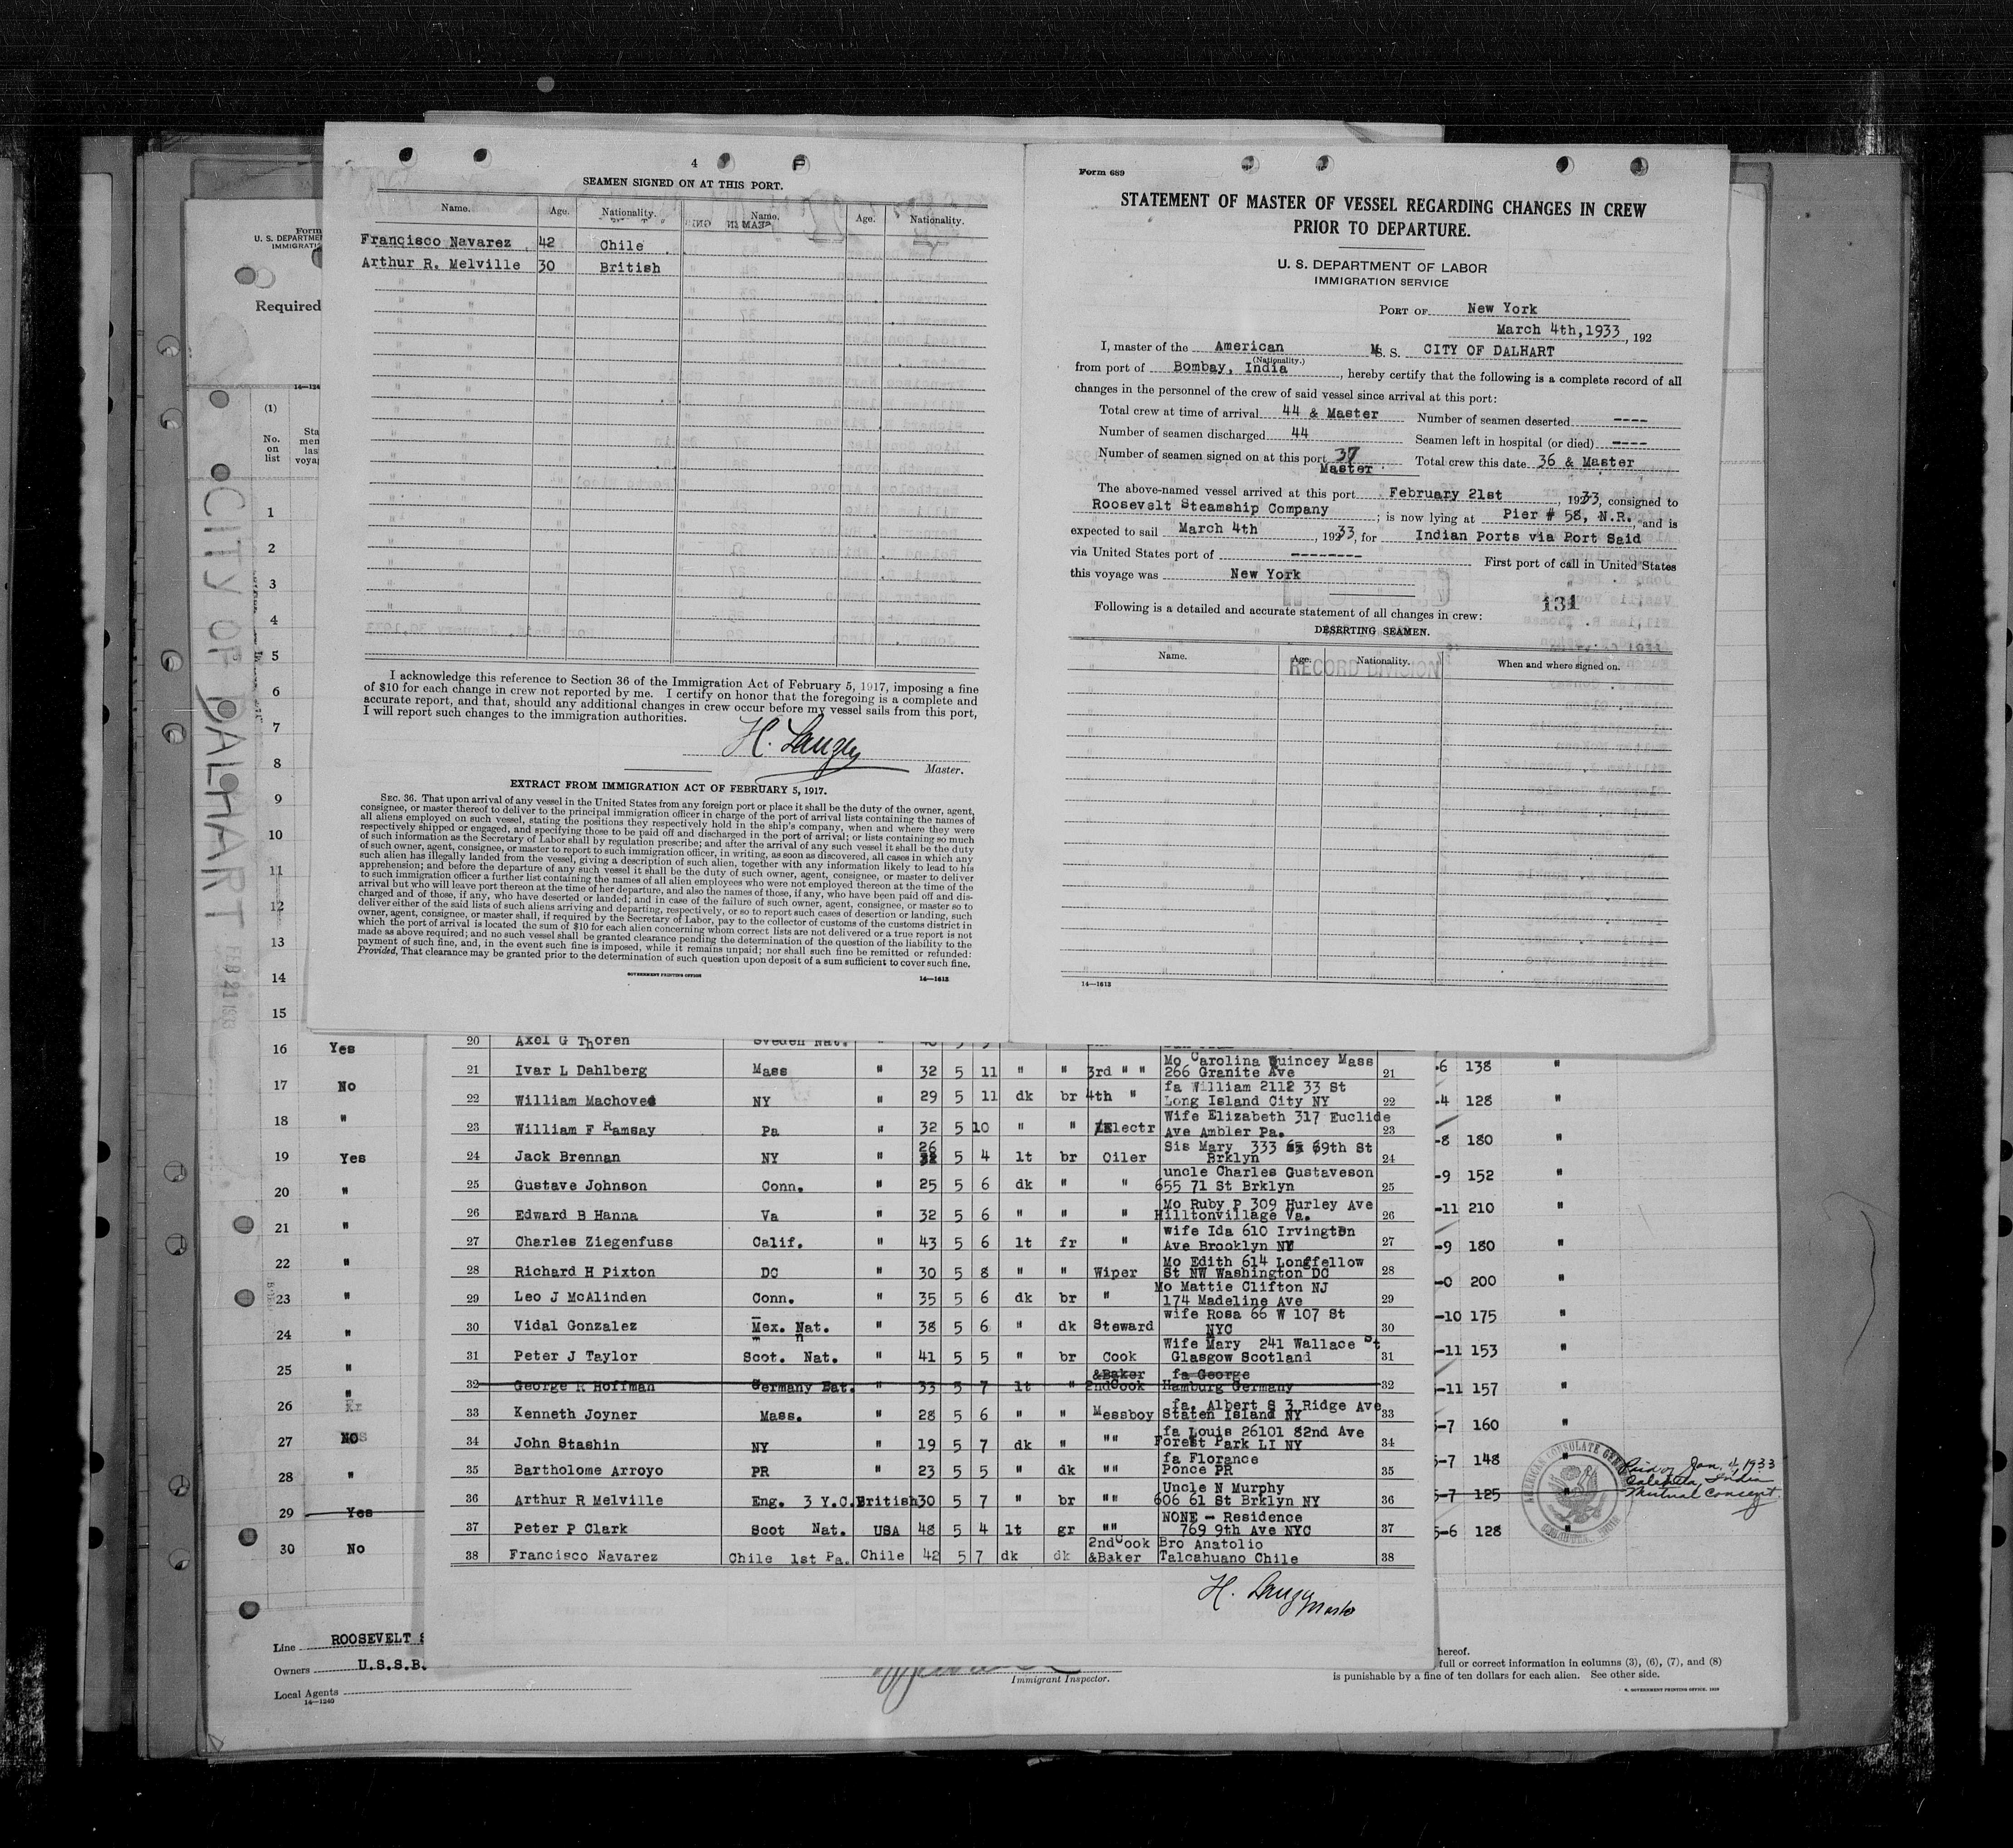 4
SEAMEN SIGNED ON AT THIS PORT.
Name. Age. Nationality. Name. Age. Nationality.
Francisco Navarez 42 Chile
Arthur R. Melville 30 British
I acknowledge this reference to Section 36 of the Immigration Act of February 5, 1917, imposing a fine
of $10 for each change in crew not reported by me. I certify on honor that the foregoing is a complete and
accurate report, and that, should any additional changes in crew occur before my vessel sails from this port,
I will report such changes to the immigration authorities.
Master.
EXTRACT FROM IMMIGRATION ACT OF FEBRUARY 5, 1917.
SEC. 36. That upon arrival of any vessel in the United States from any foreign port or place it shall be the duty of the owner, agent,
consignee, or master thereof to deliver to the principal immigration officer in charge of the port of arrival lists containing the names of
all aliens employed on such vessel, stating the positions they respectively hold in the ship's company, when and where they were
respectively shipped or engaged, and specifying those to be paid off and discharged in the port of arrival; or lists containing so much
of such information as the Secretary of Labor shall by regulation prescribe; and after the arrival of any such vessel it shall be the duty
of such owner, agent, consignee, or master to report to such immigration officer, in writing, as soon as discovered, all cases in which any
such alien has illegally landed from the vessel, giving a description of such alien, together with any information likely to lead to his
apprehension; and before the departure of any such vessel it shall be the duty of such owner, agent, consignee, or master to deliver
to such immigration officer a further list containing the names of all alien employees who were not employed thereon at the time of the
arrival but who will leave port thereon at the time of her departure, and also the names of those, if any, who have been paid off and dis-
charged and of those, if any, who have deserted or landed; and in case of the failure of such owner, agent, consignee, or master so to
deliver either of the said lists of such aliens arriving and departing, respectively, or so to report such cases of desertion or landing, such
owner, agent, consignee, or master shall, if required by the Secretary of Labor, pay to the collector of customs of the customs district in
which the port of arrival is located the sum of $10 for each alien concerning whom correct lists are not delivered or a true report is not
made as above required; and no such vessel shall be granted clearance pending the determination of the question of the liability to the
payment of such fine, and, in the event such fine is imposed, while it remains unpaid; nor shall such fine be remitted or refunded:
Provided, That clearance may be granted prior to the determination of such question upon deposit of a sum sufficient to cover such fine.
GOVERNMENT PRINTING OFFICE 14—1613
Form 689
STATEMENT OF MASTER OF VESSEL REGARDING CHANGES IN CREW
PRIOR TO DEPARTURE.
U. S. DEPARTMENT OF LABOR
IMMIGRATION SERVICE
PORT OF New York
March 4th,1933, 192
I, master of the American M. S. S. CITY OF DALHART
(Nationality.)
from port of Bombay, India, hereby certify that the following is a complete record of all
changes in the personnel of the crew of said vessel since arrival at this port:
Total crew at time of arrival 44 & Master Number of seamen deserted ----
Number of seamen discharged 44 Seamen left in hospital (or died) ----
Number of seamen signed on at this port 37 Total crew this date 36 & Master
Master
The above-named vessel arrived at this port February 21st, 1933, consigned to
Roosevelt Steamship Company; is now lying at Pier # 58, N.R. and is
expected to sail March 4th, 1933, for Indian Ports via Port Said
via United States port of -------- First port of call in United States
this voyage was New York
131
Following is a detailed and accurate statement of all changes in crew:
DESERTING SEAMEN.
Name. Age. Nationality. When and where signed on.
RECORD DIVISION
14—1613
Form
U. S. DEPARTME
IMMIGRATI
Required
14—124
(1)
No. on list
CITY OF DALHART
FEB 21 1933
1
2
3
4
5
6
7
8
9
10
11
12
13
14
15
16 Yes
17 No
18 "
19 Yes
20 "
21 "
22 "
23 "
24 "
25 "
26 "
27 NO
28 "
29 Yes
30 No
20 Axel G Thoren Sweden Nat.
21 Ivar L Dahlberg Mass " 32 5 11 " " 3rd " " Mo Carolina Quincey Mass 266 Granite Ave 21
22 William Machovec NY " 29 5 11 dk br 4th " fa William 2112 33 St Long Island City NY 22
23 William F Ramsay Pa " 32 5 10 " " Electr Wife Elizabeth 317 Euclide Ave Ambler Pa. 23
24 Jack Brennan NY " 26 5 4 lt br Oiler Sis Mary 333 69th St Brklyn 24
25 Gustave Johnson Conn. " 25 5 6 dk " " uncle Charles Gustaveson 655 71 St Brklyn 25
26 Edward B Hanna Va " 32 5 6 " " " Mo Ruby P 309 Hurley Ave Hilltonvillage Va. 26
27 Charles Ziegenfuss Calif. " 43 5 6 lt fr " wife Ida 610 Irvington Ave Brooklyn NY 27
28 Richard H Pixton DC " 30 5 8 " " Wiper Mo Edith 614 Longfellow St NW Washington DC 28
29 Leo J McAlinden Conn. " 35 5 6 dk br " Mo Mattie Clifton NJ 174 Madeline Ave 29
30 Vidal Gonzalez Mex. Nat. " 38 5 6 " dk Steward wife Rosa 66 W 107 St NYC 30
31 Peter J Taylor Scot. Nat. " 41 5 5 " br Cook Wife Mary 241 Wallace St Glasgow Scotland 31
32 George R Hoffman Germany Nat. " 33 5 7 lt " &Baker 2ndCook fa George Hamburg Germany 32
33 Kenneth Joyner Mass. " 28 5 6 " " Messboy fa. Albert S 3 Ridge Ave Staten Island NY 33
34 John Stashin NY " 19 5 7 dk " "" fa Louis 26101 82nd Ave Forest Park LI NY 34
35 Bartholome Arroyo PR " 23 5 5 " dk "" fa Florance Ponce PR 35
36 Arthur R Melville Eng. 3 Y.C. British 30 5 7 " br "" Uncle N Murphy 606 61 St Brklyn NY 36
37 Peter P Clark Scot Nat. USA 48 5 4 lt gr "" NONE - Residence 769 9th Ave NYC 37
38 Francisco Navarez Chile 1st Pa. Chile 42 5 7 dk dk 2ndCook &Baker Bro Anatolio Talcahuano Chile 38
Master
-6 138 "
-4 128 "
-8 180 "
-9 152 "
-11 210 "
-9 180 "
-0 200 "
-10 175 "
-11 153 "
-11 157 "
-7 160 "
-7 148 "
-7 125
-6 128 "
AMERICAN CONSULATE GENERAL
Paid off Jan. 4, 1933
Calcutta, India
Mutual Consent.
Line ROOSEVELT S
Owners U.S.S.B.
Local Agents
14—1240
Immigrant Inspector.
hereof.
full or correct information in columns (3), (6), (7), and (8)
is punishable by a fine of ten dollars for each alien. See other side.